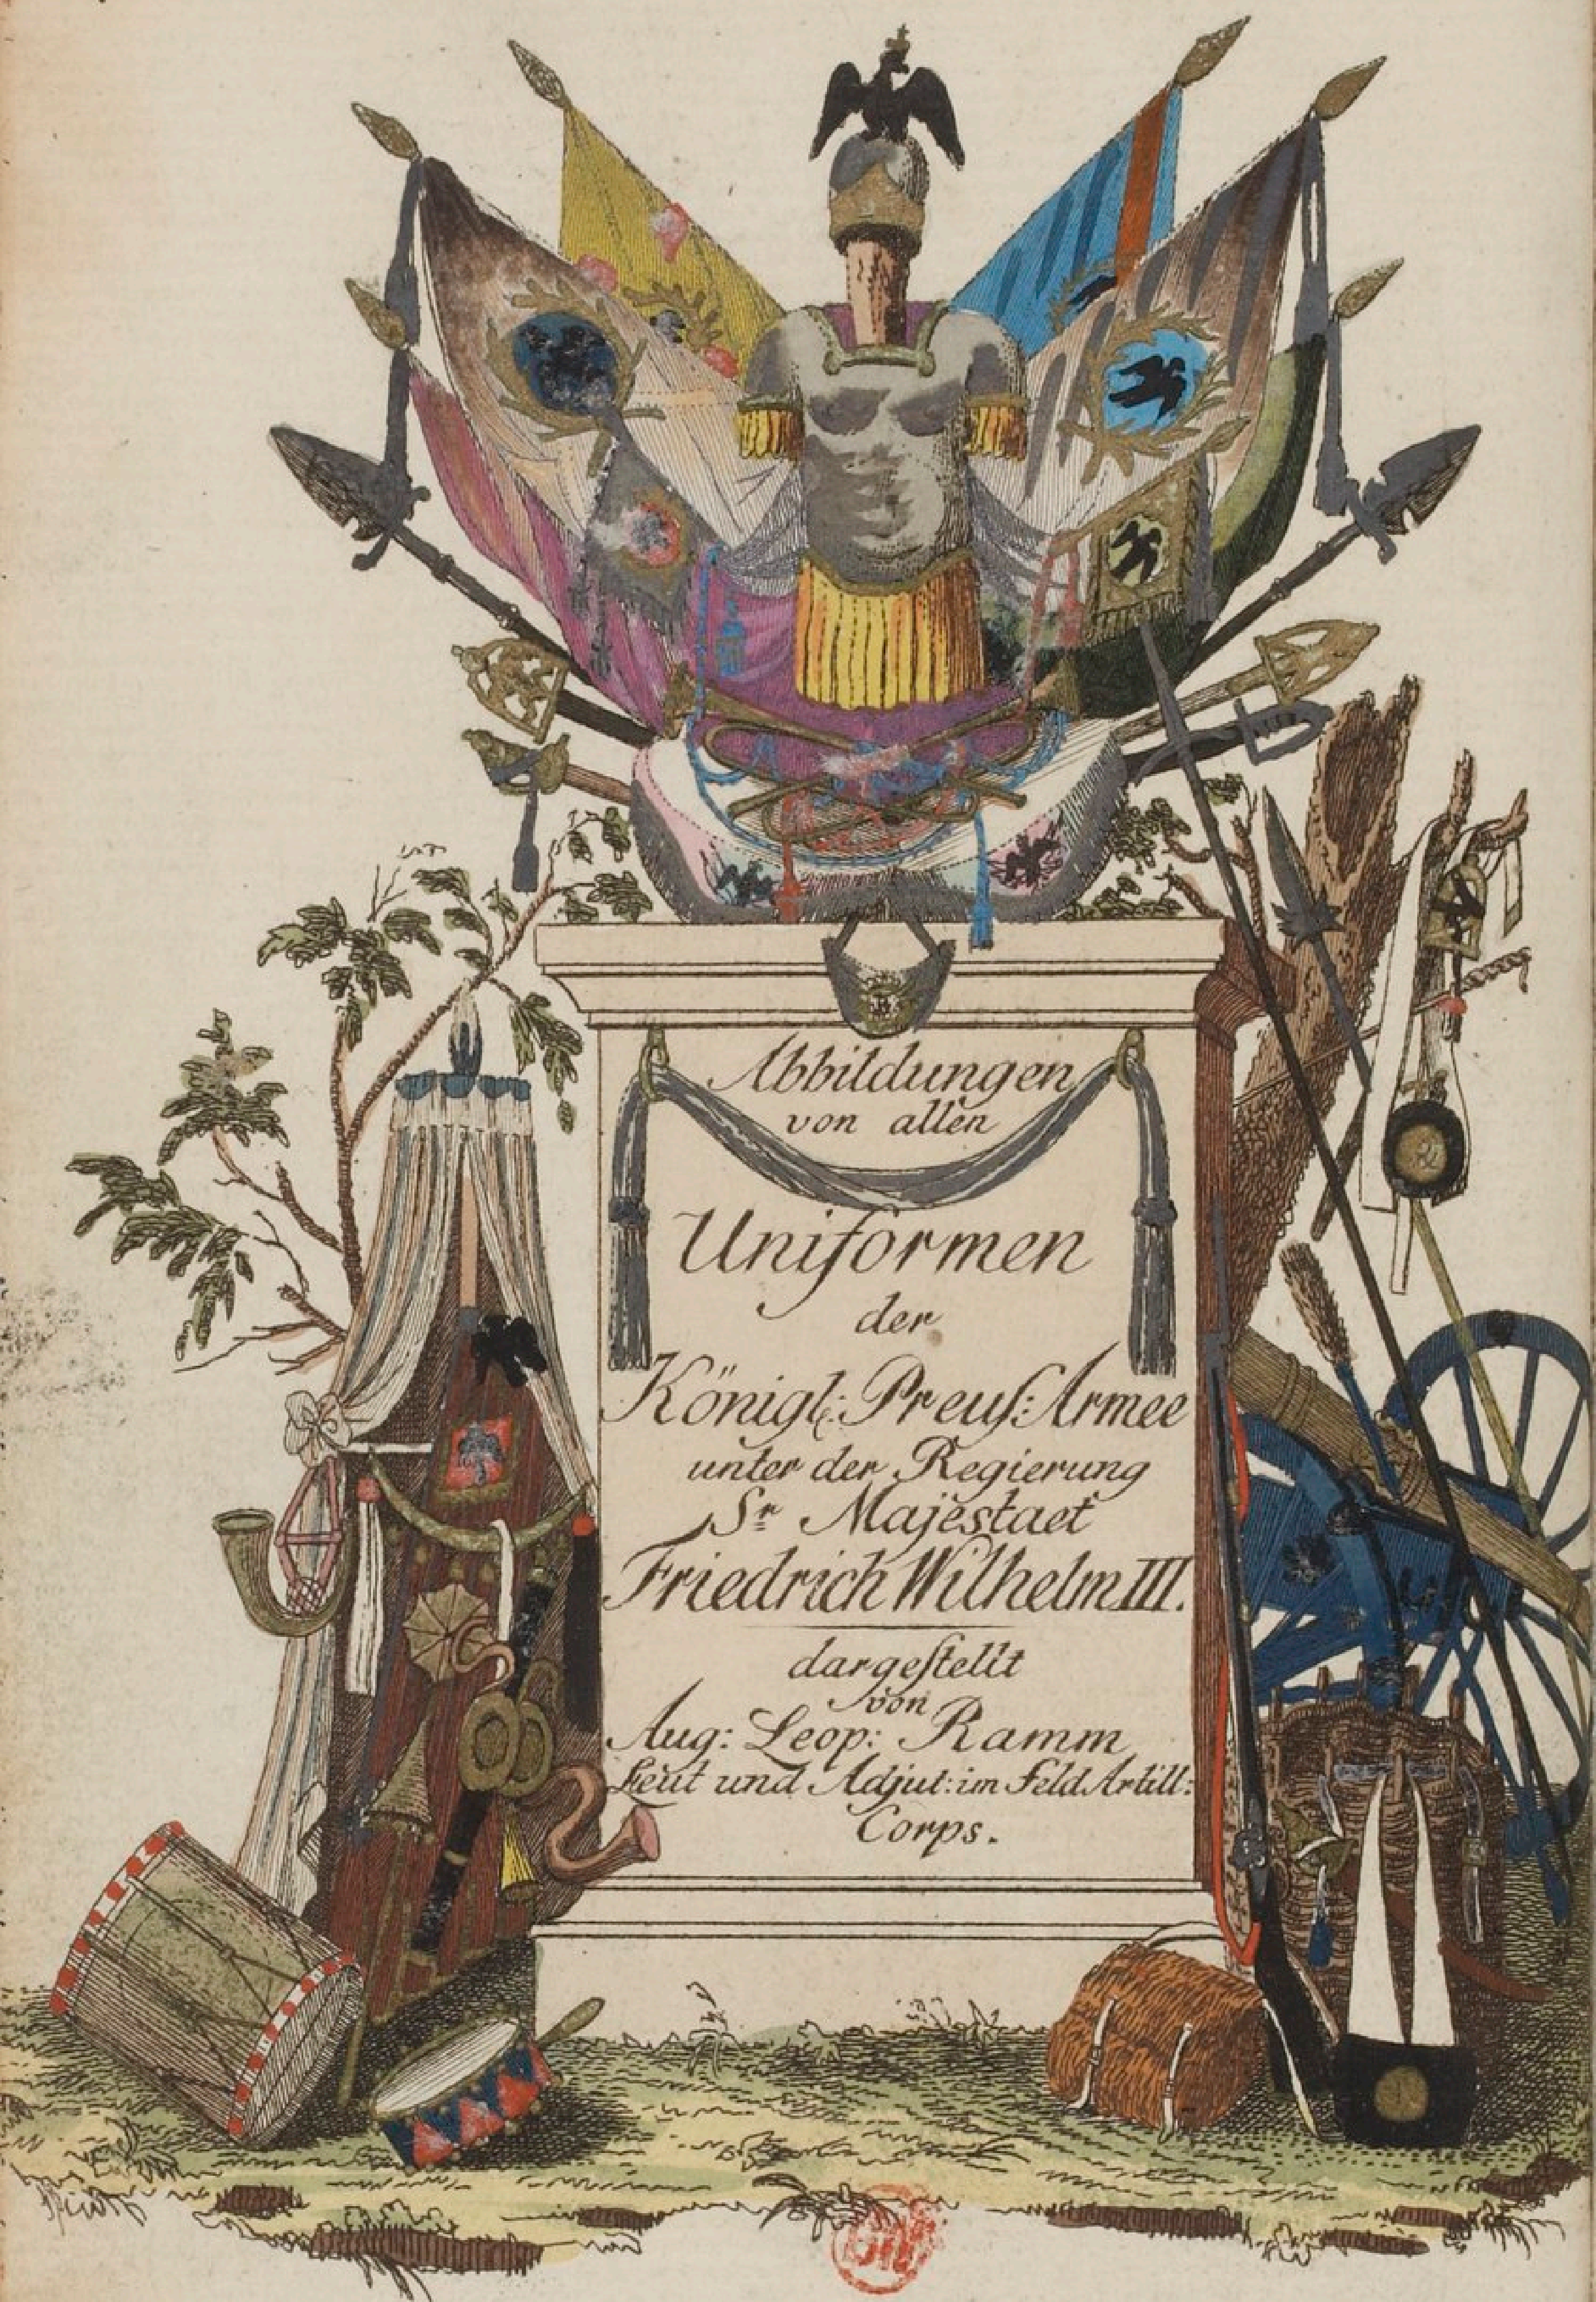 Abbildungen
von allen
Uniformen
der
Königl: Preuſ: Armee
unter der Regierung
Sr Majestaet
Friedrich Wilhelm III.
dargeſtellt
von
Aug: Leop: Ramm
Leut und Adjut: im Feld Artill:
Corps.